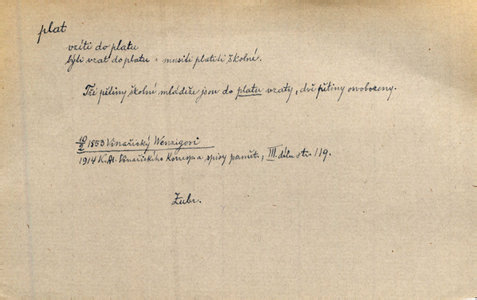 plat
vzíti do platu
býti vzat do platu = musiti platiti školné.
Tři pětiny školné mládeže jsou do platu vzaty, dvě pětiny osvobozeny.
10/2 1853 Vinařický Wenzigovi
1914 K. Al. Vinařického Koresp. a spisy pamětn., III. dílu str. 119.
Zubr.